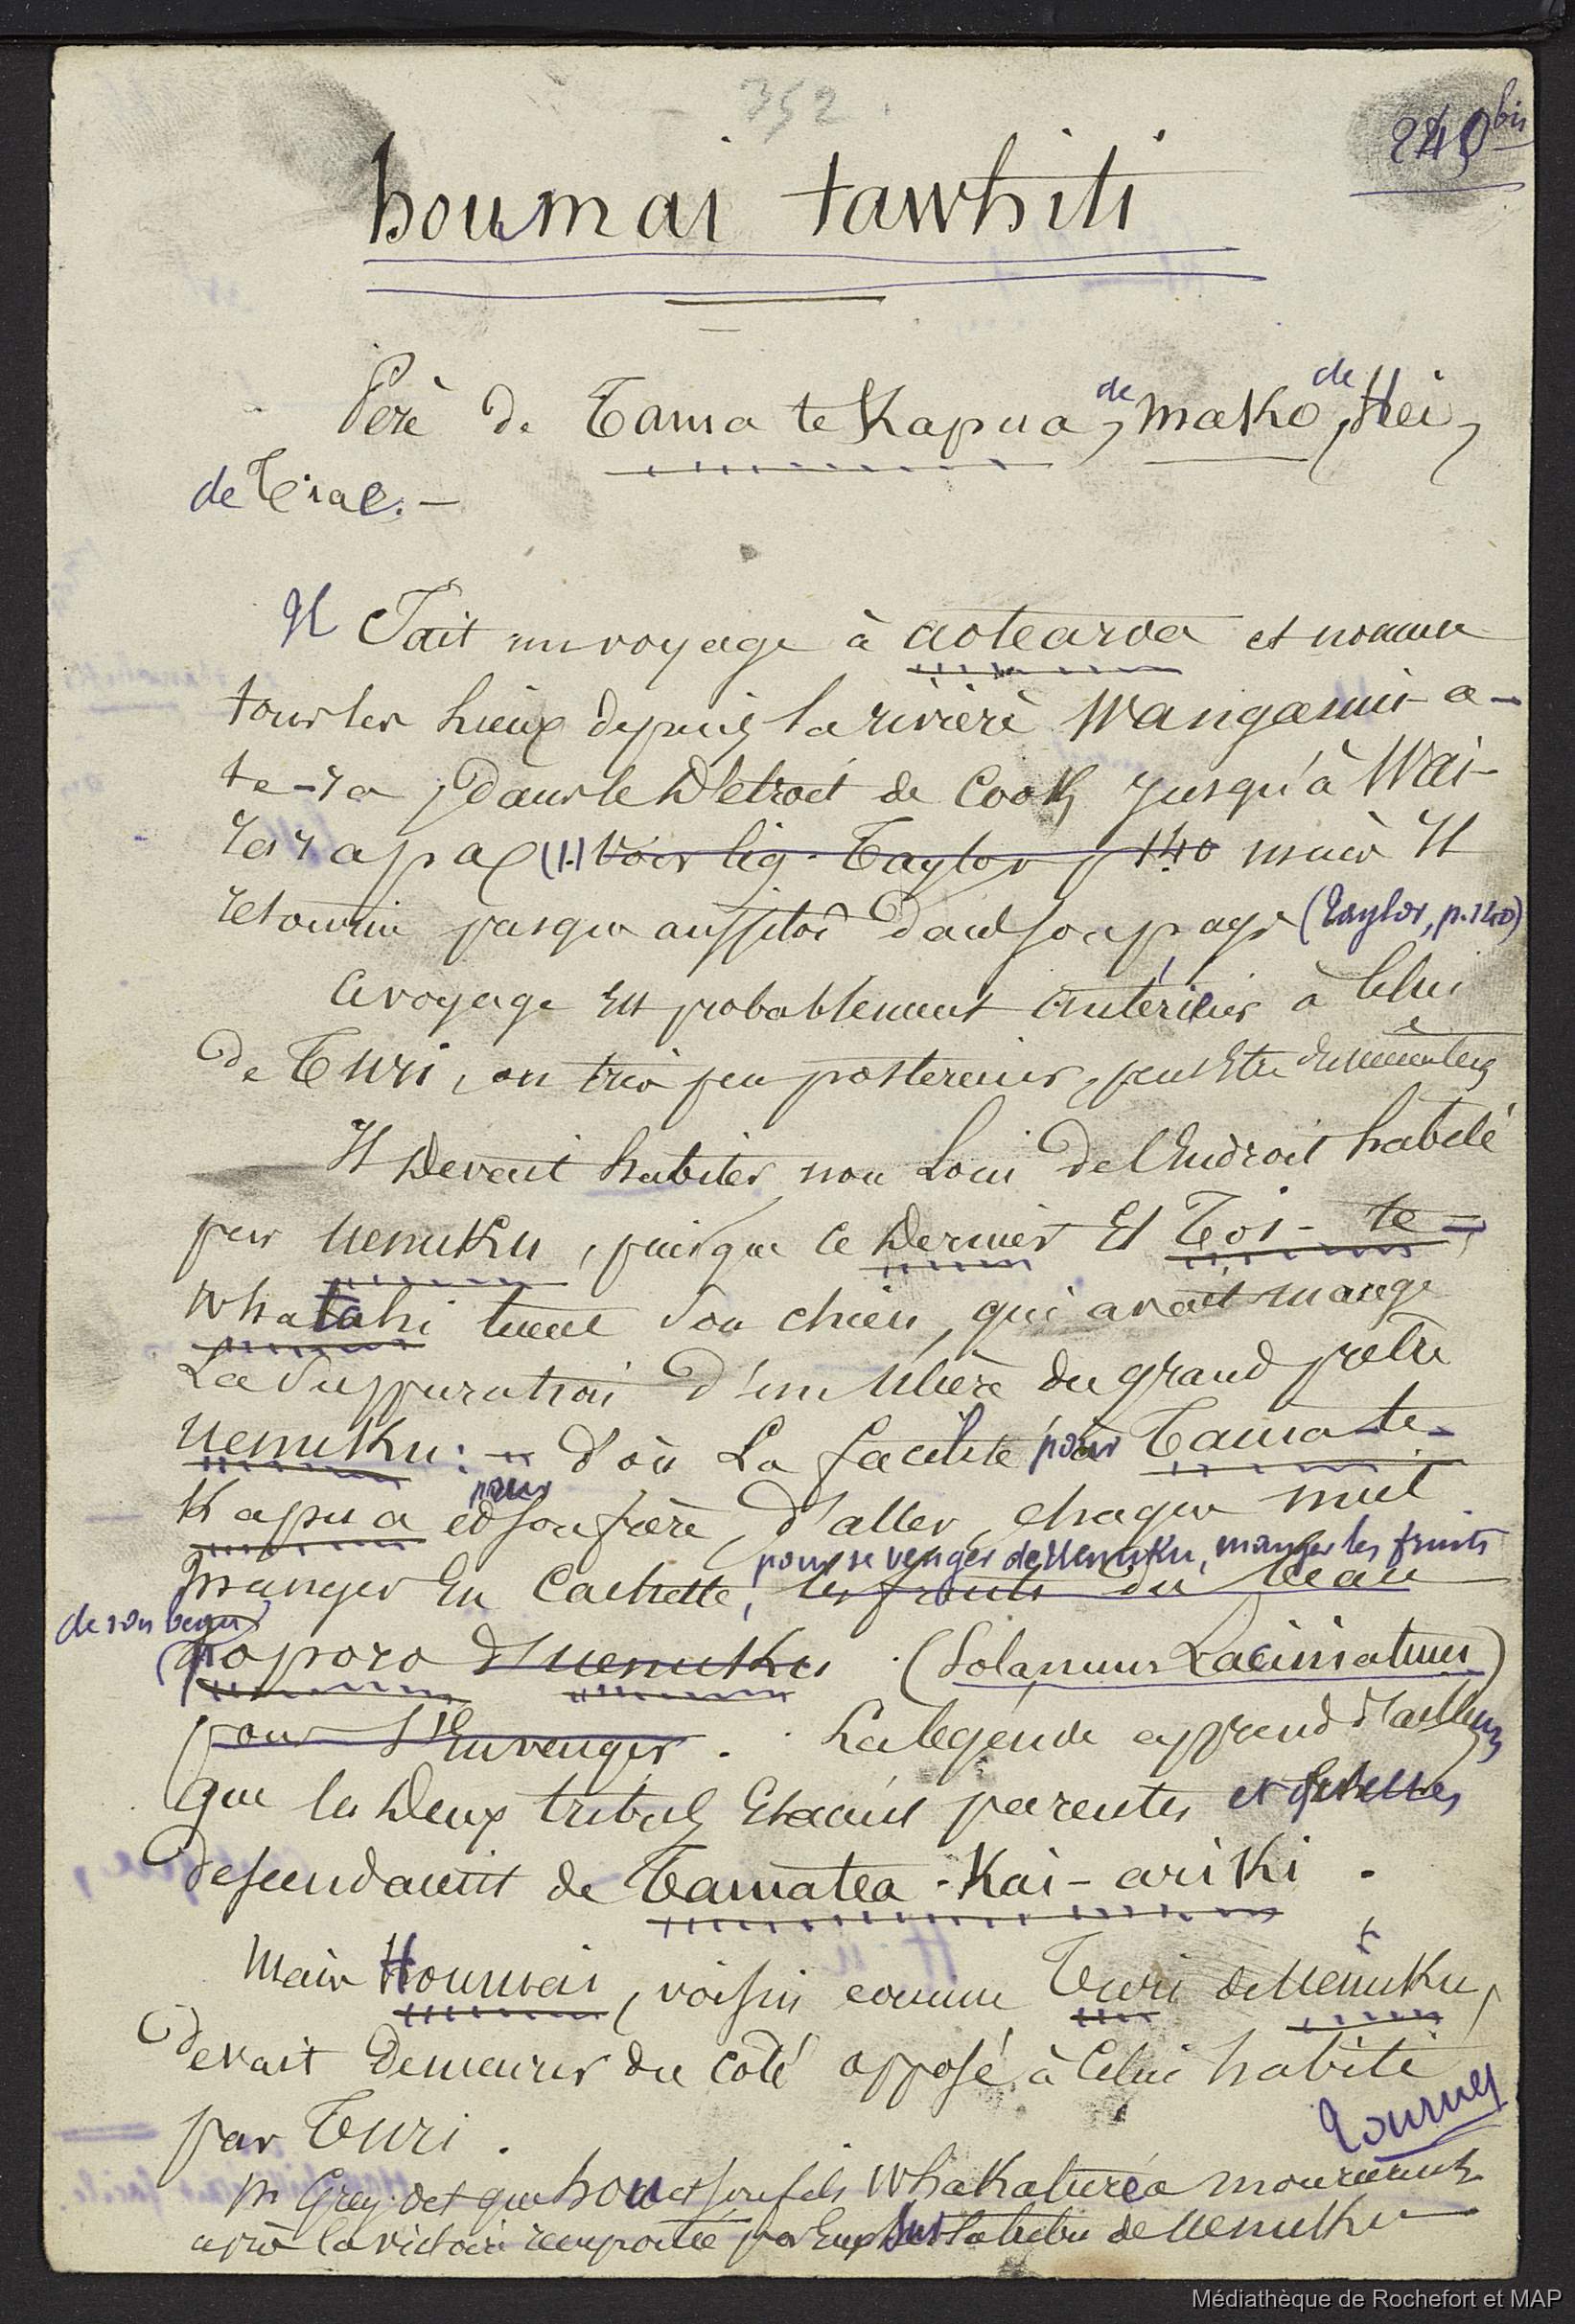 352
240 bis
houmai tawhiti
Père de Tama te Kapua, de mako, de Hei,
de Tiae. —
Il Fait un voyage à aotearoa et nomma
tous les lieux depuis la rivière Wanganui-a-
te-ra, dans le Détroit de Cook jusqu'à Wai-
rarapa (1) Voir lig. Taylor p. 140 mais Il
retourna presque aussitôt dans son pays (Taylor, p. 140)
Ce voyage est probablement antérieur à Celui
de Turi, ou très peu posterieur, peut Etre du même temps
Il Devait habiter non Loin de l'Endroit habité
par Uenuku, puisque ce Dernier Et Toi-te-
Whatahi tuent son chien, qui avait mangé
La Suppuration d'un Ulcère du grand prêtre
Uenuku : — d'où La facilité pour Tama-te-
Kapua et pour son frère, d'aller, chaque nuit
manger En Cachette, les fruits du beau
pour se venger de Uenuku, manger les fruits
de son beau
poporo d'Uenuku (Solanum Laciniatum)
pour s'En venger. La légende apprend d'ailleurs
que les Deux tribus Etaient parentes et qu'elles
descendaient de Tamatea-Kai-ariki.
Mais Houmai, voisin comme Turi de Uenuku,
devait Demeurer du côté opposé à Celui habité
par Turi.
Tournez
Mr Grey dit que hou et son fils Whakaturia moururent
après la victoire remportée par Eux sur la tribu de Uenuku
Médiathèque de Rochefort et MAP